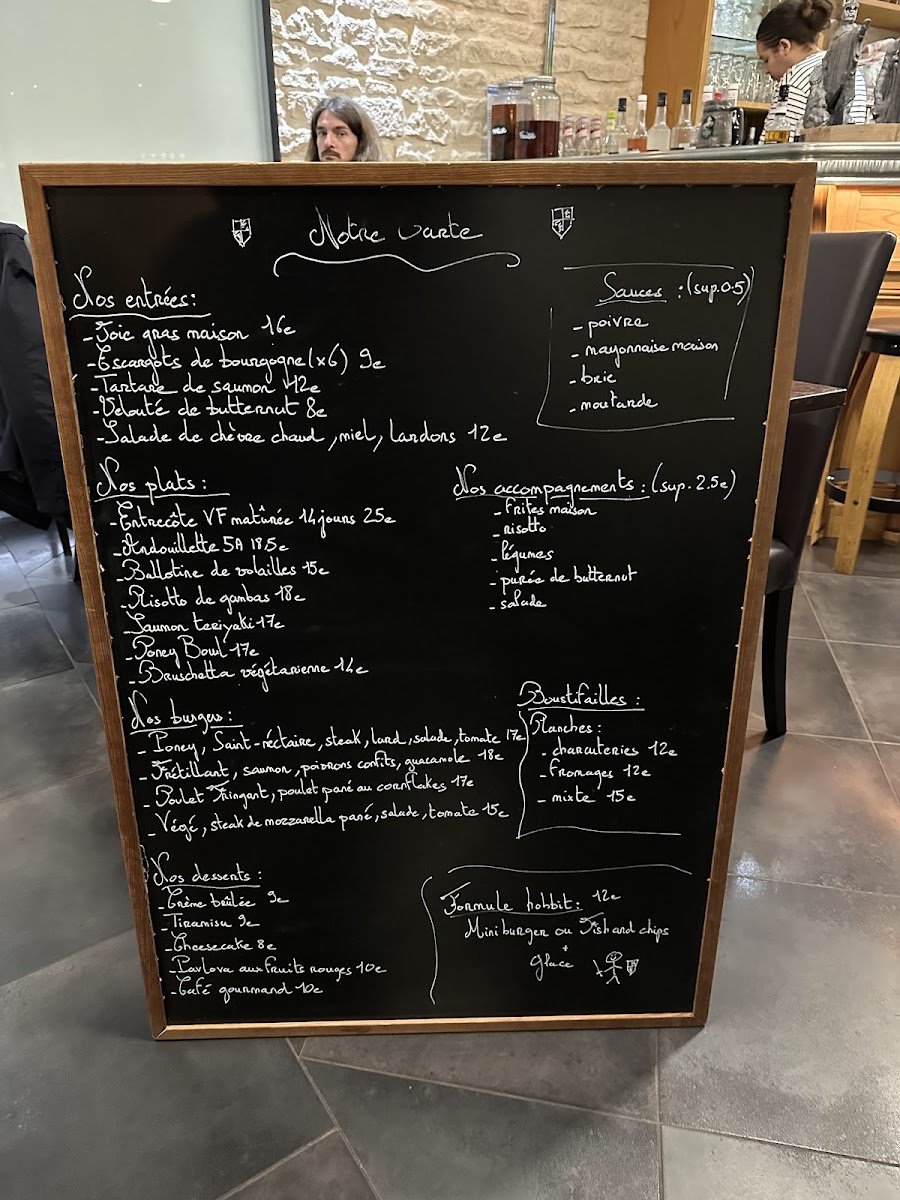 Notre carte
Nos entrées:
- Foie gras maison 16e
- Escargots de bourgogne (x6) 9e
- Tartare de saumon 12e
- Velouté de butternut 8e
- Salade de chèvre chaud, miel, lardons 12e
Sauces : (sup. 0.5)
- poivre
- mayonnaise maison
- brie
- moutarde
Nos plats :
- Entrecôte VF maturée 14 jours 25e
- Andouillette 5A 18.5e
- Ballotine de volailles 15e
- Risotto de gambas 18e
- Saumon teriyaki 17e
- Poney Bowl 17e
- Bruschetta végétarienne 14e
Nos accompagnements : (sup. 2.5e)
- frites maison
- risotto
- légumes
- purée de butternut
- salade
Nos burgers :
- Poney, Saint-néctaire, steak, lard, salade, tomate 17e
- Frétillant, saumon, poivrons confits, guacamole 18e
- Poulet Fringant, poulet pané au cornflakes 17e
- Végé, steak de mozzarella pané, salade, tomate 15e
Boustifailles :
Planches :
- charcuteries 12e
- fromages 12e
- mixte 15e
Nos desserts :
- Crème brûlée 9e
- Tiramisu 9e
- Cheesecake 8e
- Pavlova aux fruits rouges 10e
- Café gourmand 10e
Formule hobbit : 12e
Mini burger ou Fish and chips
+
glace